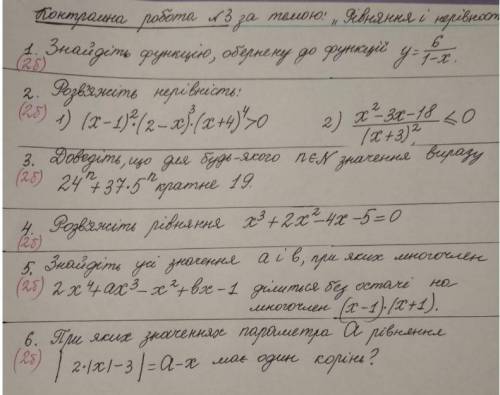 Контрольна робота №3 за темою: „Рівняння і нерівност
1. Знайдіть функцію, обернену до функції y = 6/(1-x).
(2б)
2. Розв'яжіть нерівність:
(2б) 1) (x-1)²·(2-x)³·(x+4)⁴>0 2) (x²-3x-18)/(x+3)² ≤0
3. Доведіть, що для будь-якого n∈N значення виразу
(2б) 24ⁿ+37·5ⁿ кратне 19.
4. Розв'яжіть рівняння x³+2x²-4x-5=0
(2б)
5. Знайдіть усі значення a і b, при яких многочлен
(2б) 2x⁴+ax³-x²+bx-1 ділиться без остачі на
многочлен (x-1)·(x+1).
6. При яких значеннях параметра a рівняння
(2б) |2·|x|-3|=a-x має один корінь?